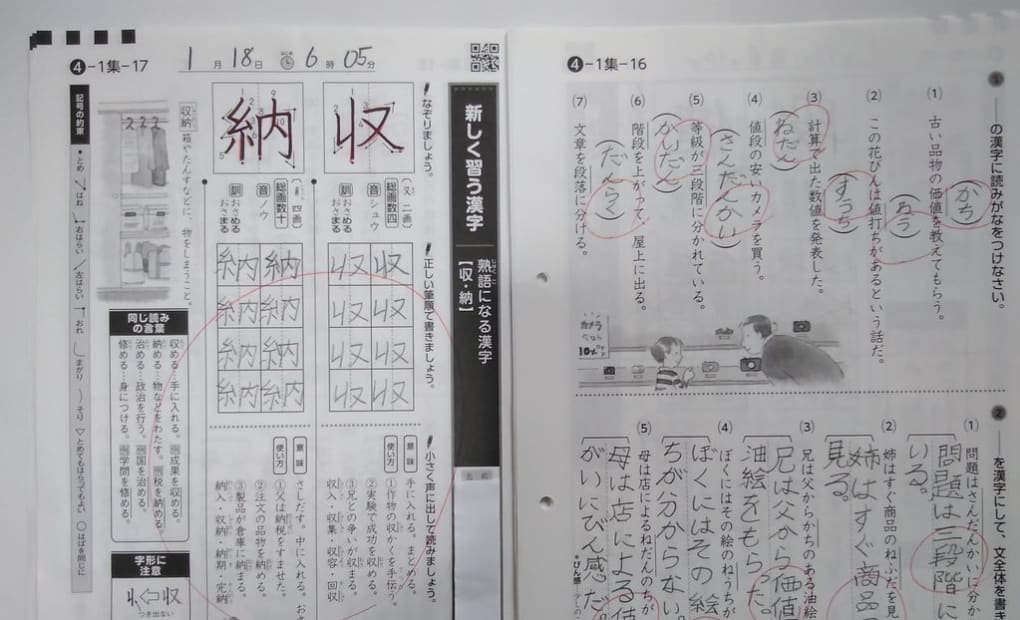 ❹-1集-17
1月18日 6時05分
新しく習う漢字
熟語になる漢字
【収・納】
なぞりましょう。
収
納
(又・二画)
総画数四
音 シュウ
訓 おさめる
おさまる
総画数十
音 ノウ
訓 おさめる
おさまる
正しい筆順で書きましょう。
収 収
収 収
収 収
収 収
納 納
納 納
納 納
納 納
小さく声に出して読みましょう。
意味
手に入れる。まとめる。
使い方
①作物の収かくを手伝う。
②実験で成功を収める。
③兄との争いが収まる。
収入・収集・収容・回収
意味
さしだす。中に入れる。
使い方
①父は納税をすませた。
②注文の品物を納める。
③製品が倉庫に納まる。
納入・収納・納期・完納
収納
箱やたんすなどに、物をしまうこと。
同じ読みの言葉
収める…手に入れる。例成果を収める。
納める…物などをわたす。例税を納める。
治める…政治を行う。例国を治める。
修める…身につける。例学問を修める。
字形に注意
収
つき出ない
記号の約束
・とめ
はね
右はらい
左はらい
おれ
まがり
そり
▽とめてもはらってもよい
○はばを同じに
❹-1集-16
❶―の漢字に読みがなをつけなさい。
(1) 古い品物の価値を教えてもらう。
かち
(2) この花びんは値打ちがあるという話だ。
ねう
(3) 計算で出た数値を発表した。
すうち
(4) 値段の安いカメラを買う。
ねだん
(5) 等級が三段階に分かれている。
さんだんかい
(6) 階段を上がって、屋上に出る。
かいだん
(7) 文章を段落に分ける。
だんらく
カメラ
❷―を漢字にして、文全体を書き
(1) 問題はさんだんかいに分か
問題は三段階に
いる。
(2) 姉はすぐ商品のねふだを見
姉はすぐ商品の
見る。
(3) 兄は父からかちのある油絵
兄は父から価値
油絵をもらった。
(4) ぼくにはその絵のねうちが
ぼくにはその絵
ちが分からない。
(5) 母は店によるねだんのちが
母は店による値
がいにびん感だ。